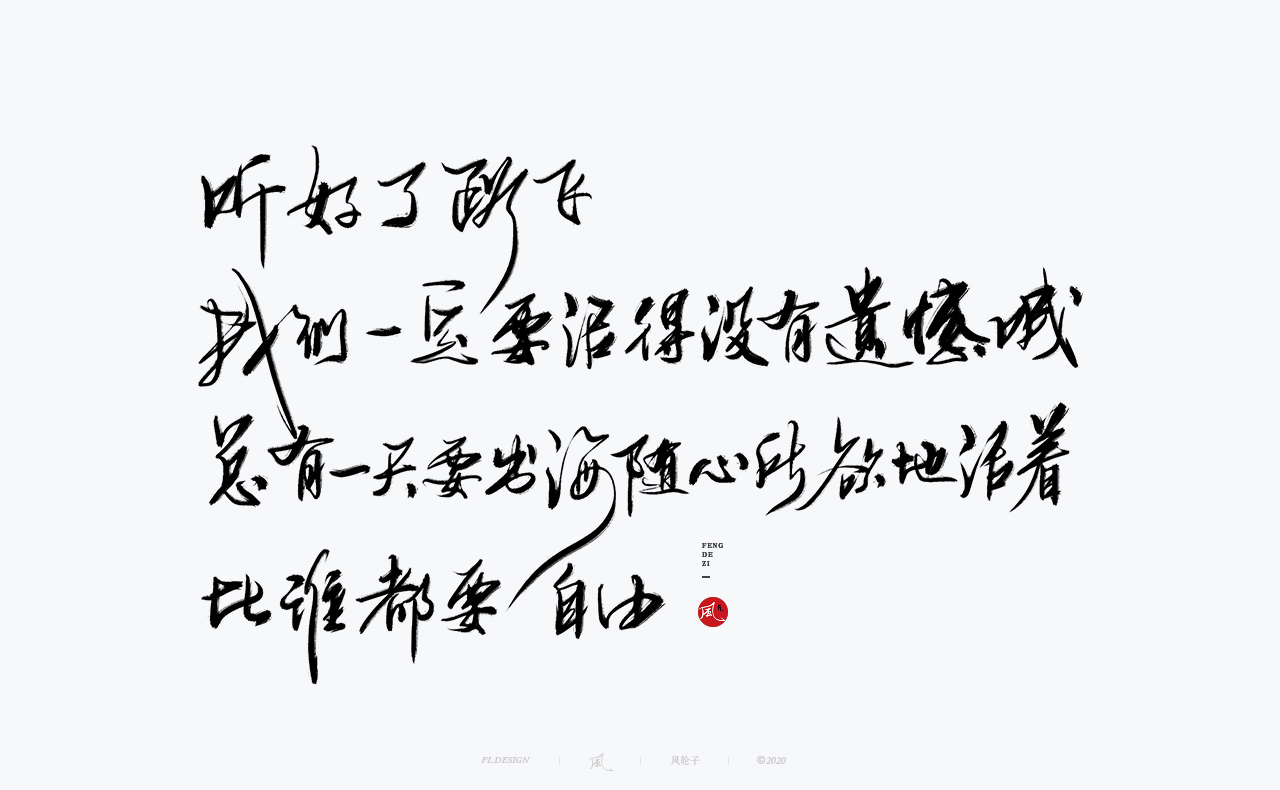 听好了路飞
我们一定要活得没有遗憾哦
总有一天要出海随心所欲地活着
比谁都要自由
FENG
DE
ZI
風
FLDESIGN 風 风轮子 ©2020